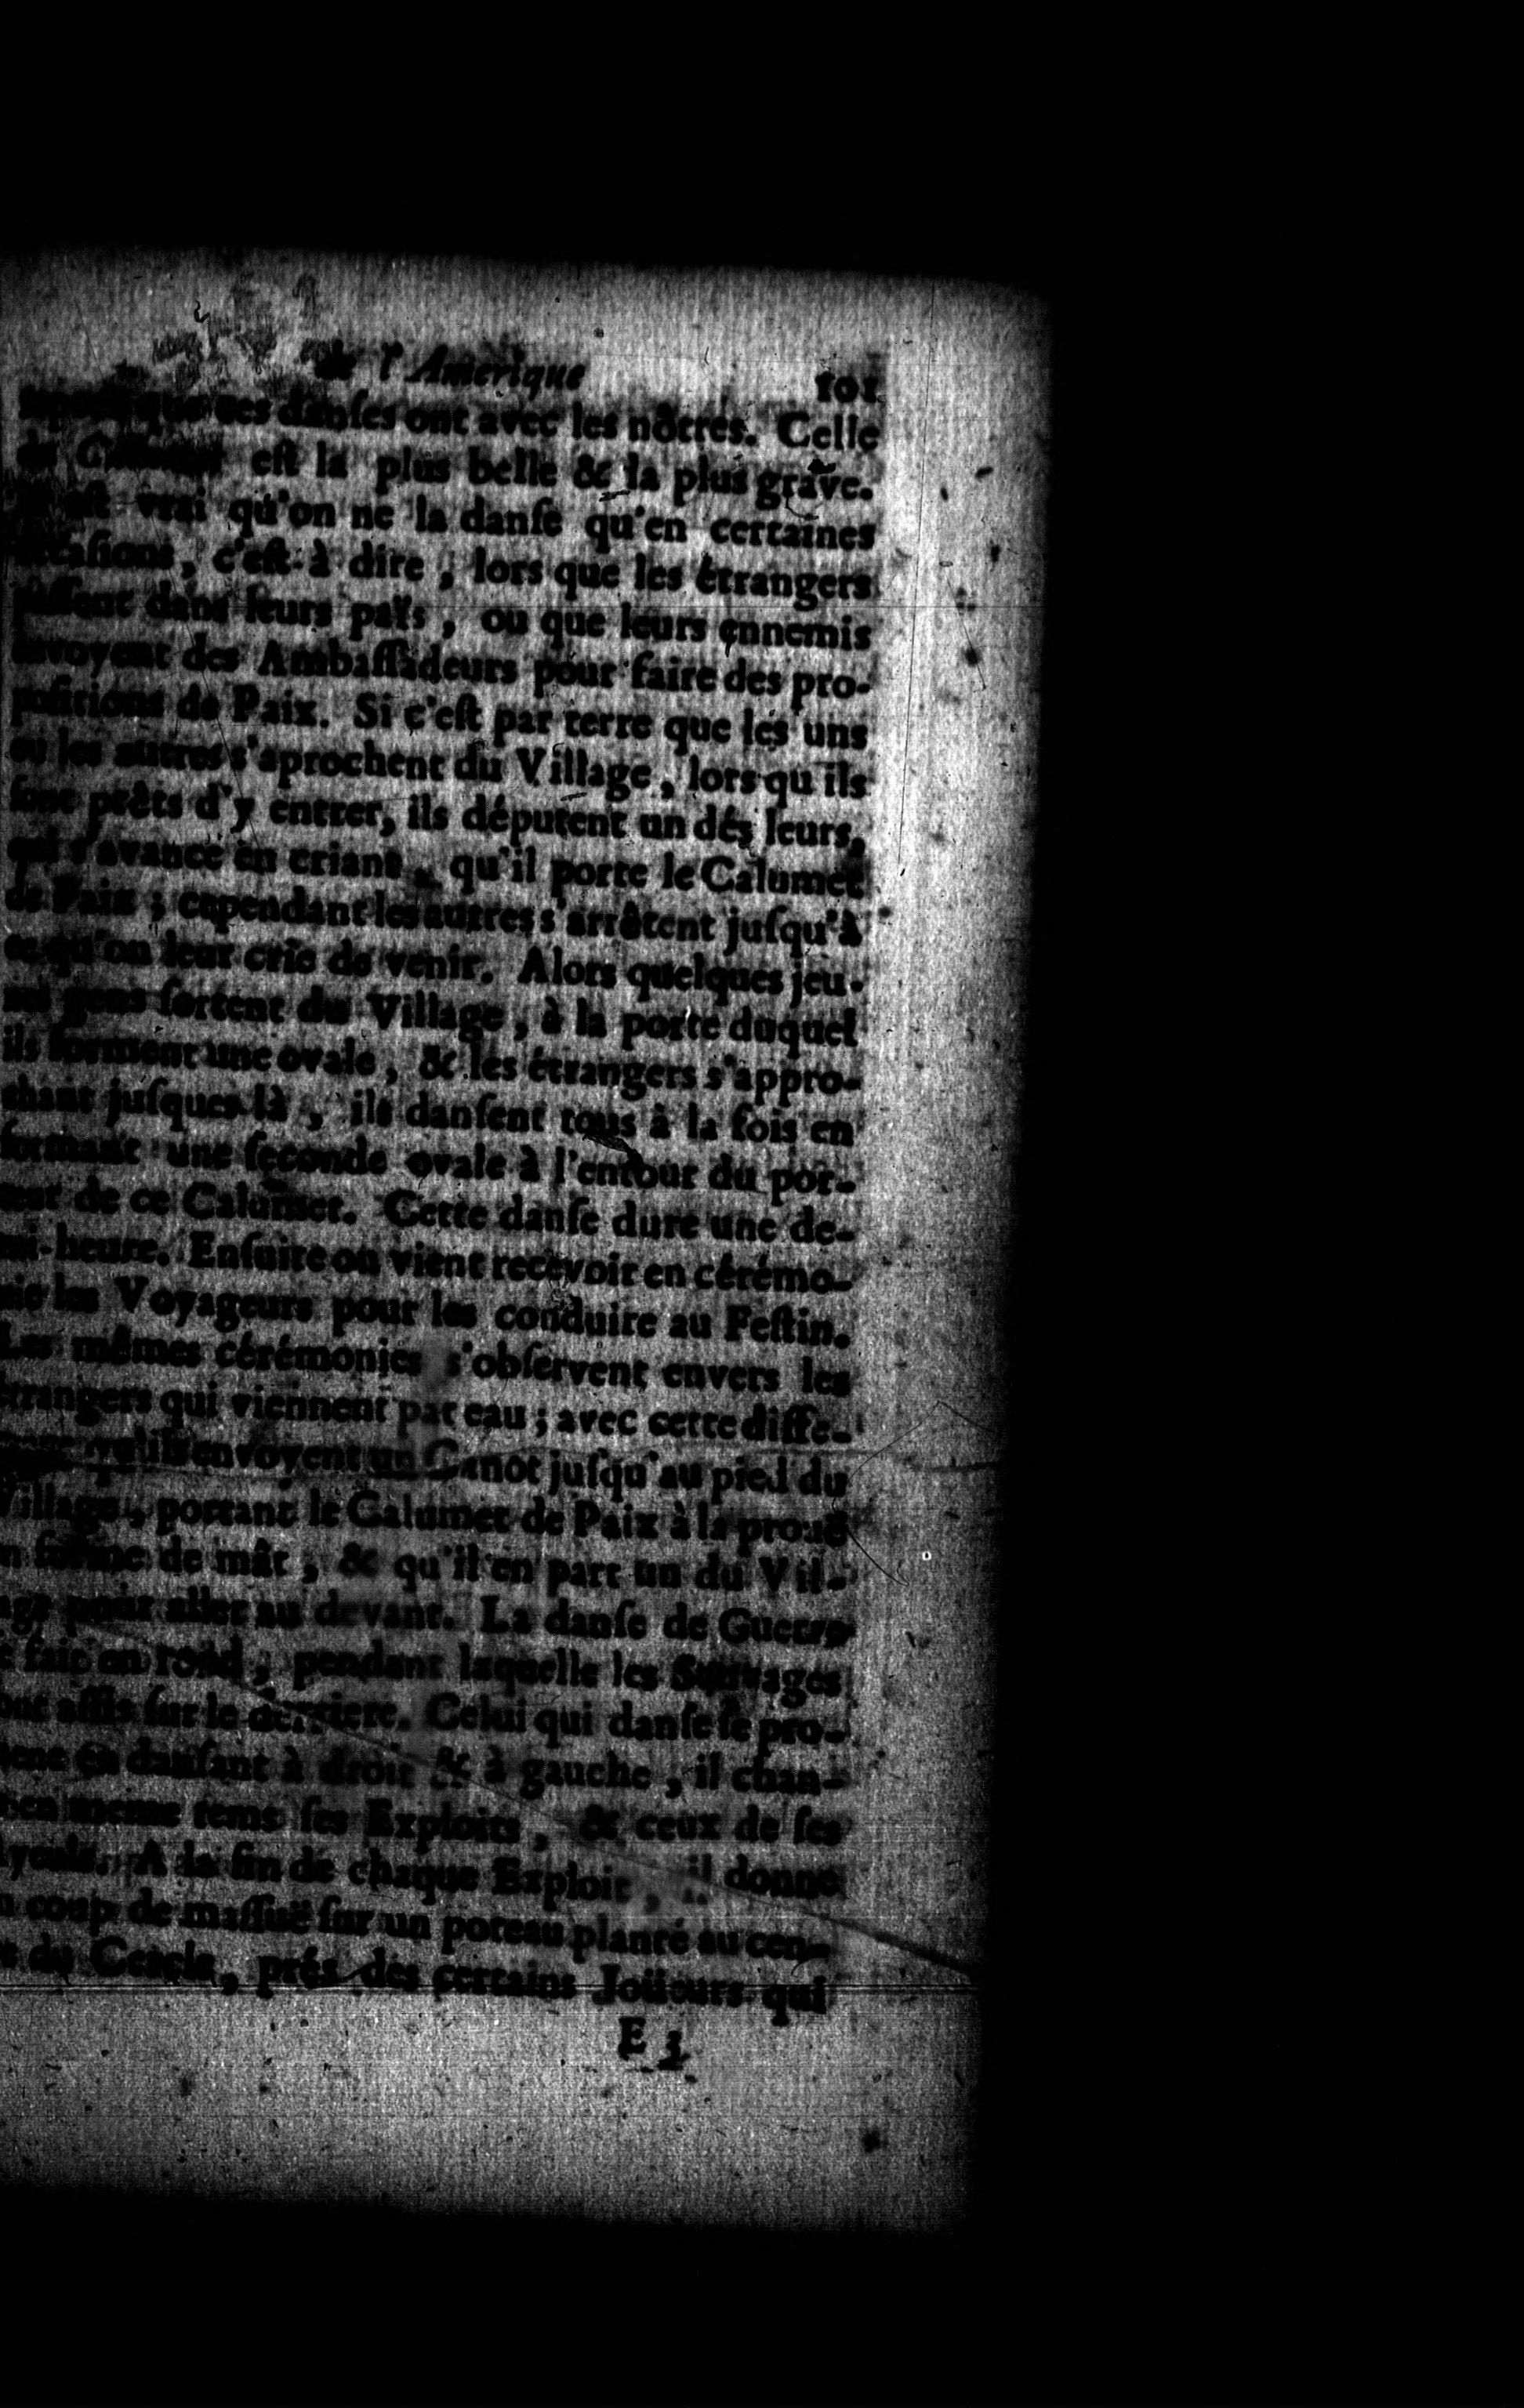 de l'Amerique 101
que ces danſes ont avec les nôtres. Celle
de Calumet eſt la plus belle & la plus grave.
eſt vrai qu'on ne la danſe qu'en certaines
occaſions, c'eſt-à dire, lors que les étrangers
paſſent dans leurs païs, ou que leurs ennemis
envoyent des Ambaſſadeurs pour faire des pro-
poſitions de Paix. Si c'eſt par terre que les uns
ou les autres s'aprochent du Village, lorsqu'ils
ſont prêts d'y entrer, ils députent un dés leurs,
qui s'avance en criant, qu'il porte le Calumet
de Paix; cependant les autres s'arrêtent juſqu'à
ce qu'on leur crie de venir. Alors quelques jeu-
nes gens ſortent du Village, à la porte duquel
ils forment une ovale, & les étrangers s'appro-
chant juſques-là, ils danſent tous à la fois en
formant une ſeconde ovale à l'entour du por-
teur de ce Calumet. Cette danſe dure une de-
mi-heure. Enſuite on vient recevoir en cérémo-
nie les Voyageurs pour les conduire au Feſtin.
Les mêmes cérémonies s'obſervent envers les
étrangers qui viennent par eau; avec cette diffe-
qu'ils envoyent un Canot juſqu'au pied du
Village, portant le Calumet de Paix à la prouë
n forme de mât, & qu'il en part un du Vil-
age pour aller au devant. La danſe de Guerre
e fait en rond, pendant laquelle les Sauvages
ont aſſis ſur le derriere. Celui qui danſe ſe pro-
mene en danſant à droit & à gauche, il chan-
en meme tems ſes Exploits, & ceux de ſes
yeuls. A la fin de chaque Exploit, il donne
n coup de maſſuë ſur un poteau planté au cen-
e du Cercle, prés des certains Joüeurs qui
E 3